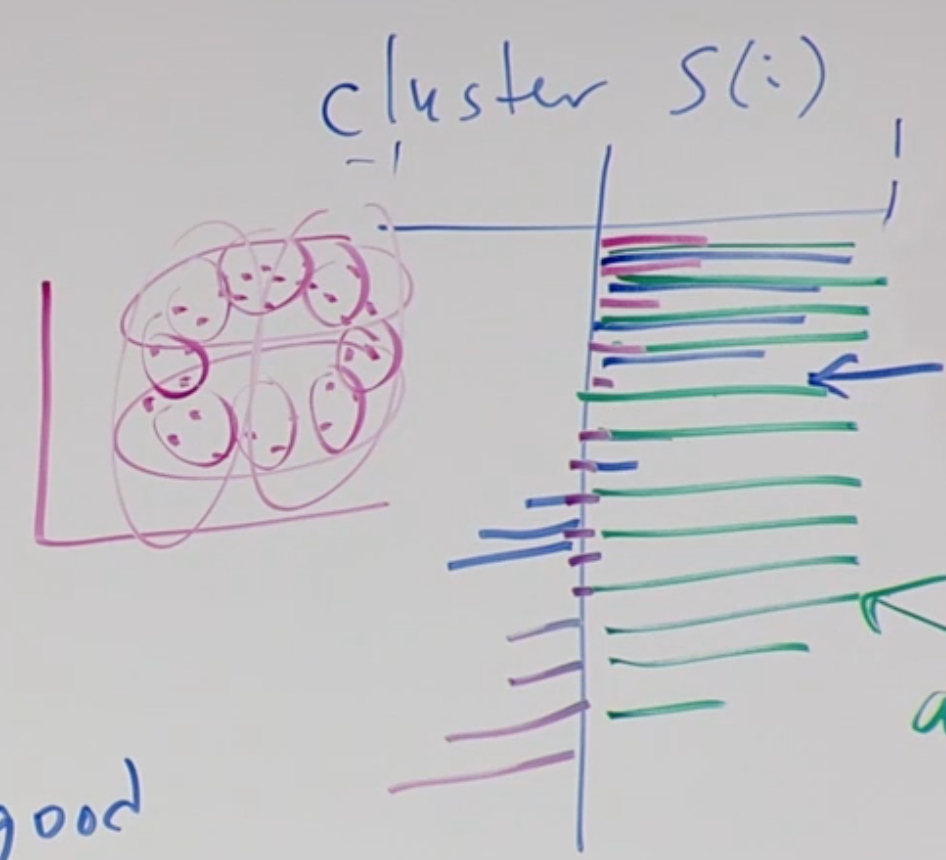 cluster S(i)
-1 1
good
a